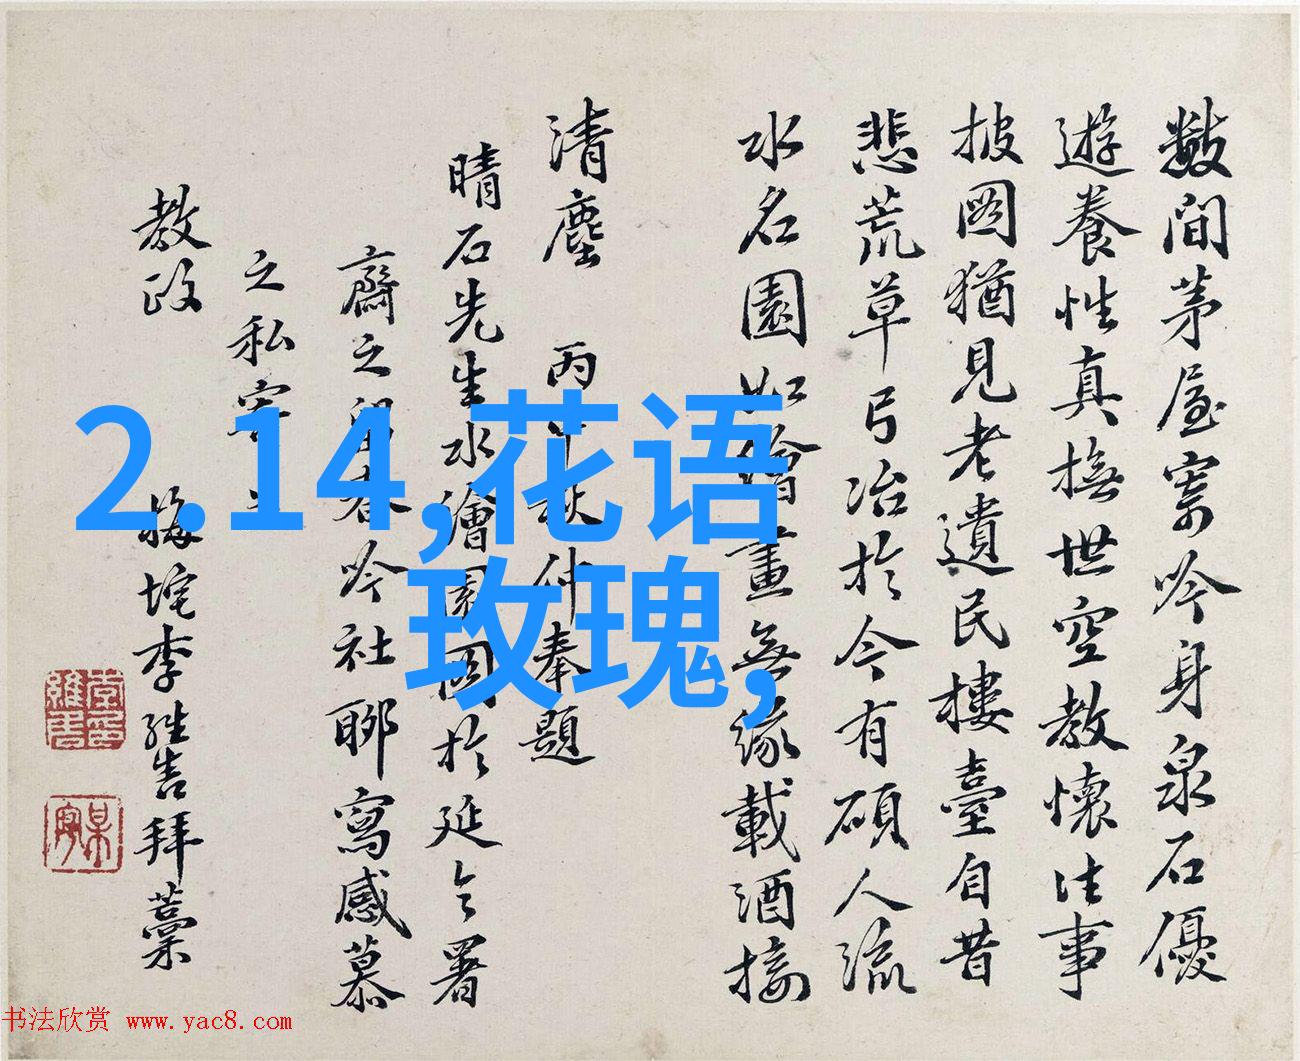 数间茅屋寄吟身泉石優
遊養性真撫世空教懷往事
披图猶見老遺民樓臺自昔
悲荒草弓冶於今有碩人流
水名園如繪畫無緣載酒接
清塵 丙 仲奉題
晴石先生水繪園图於延令署
齋之 春吟社聊寫感慕
之私
教政 李 拜藁
2.14,花语
玫瑰,
书法欣赏 www.yac8.com